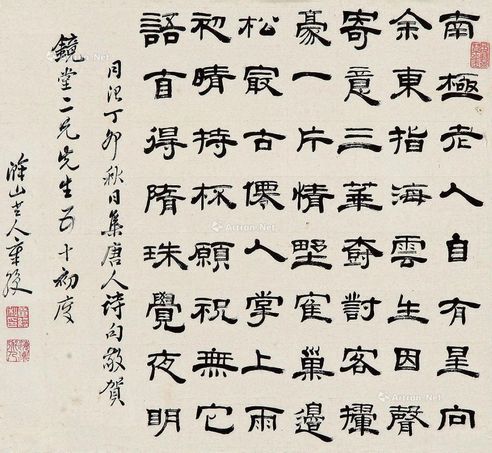 南極老人自有星向
余東指海雲生因聲
寄意三華對客揮
豪一片情野寉巢邊
松㝡古僊人掌上雨
初晴持杯願祝無它
語直得隋珠覺夜明
同治丁卯秋日集唐人詩句敬賀
鏡堂二兄先生五十初度
山老人
Artron.Net